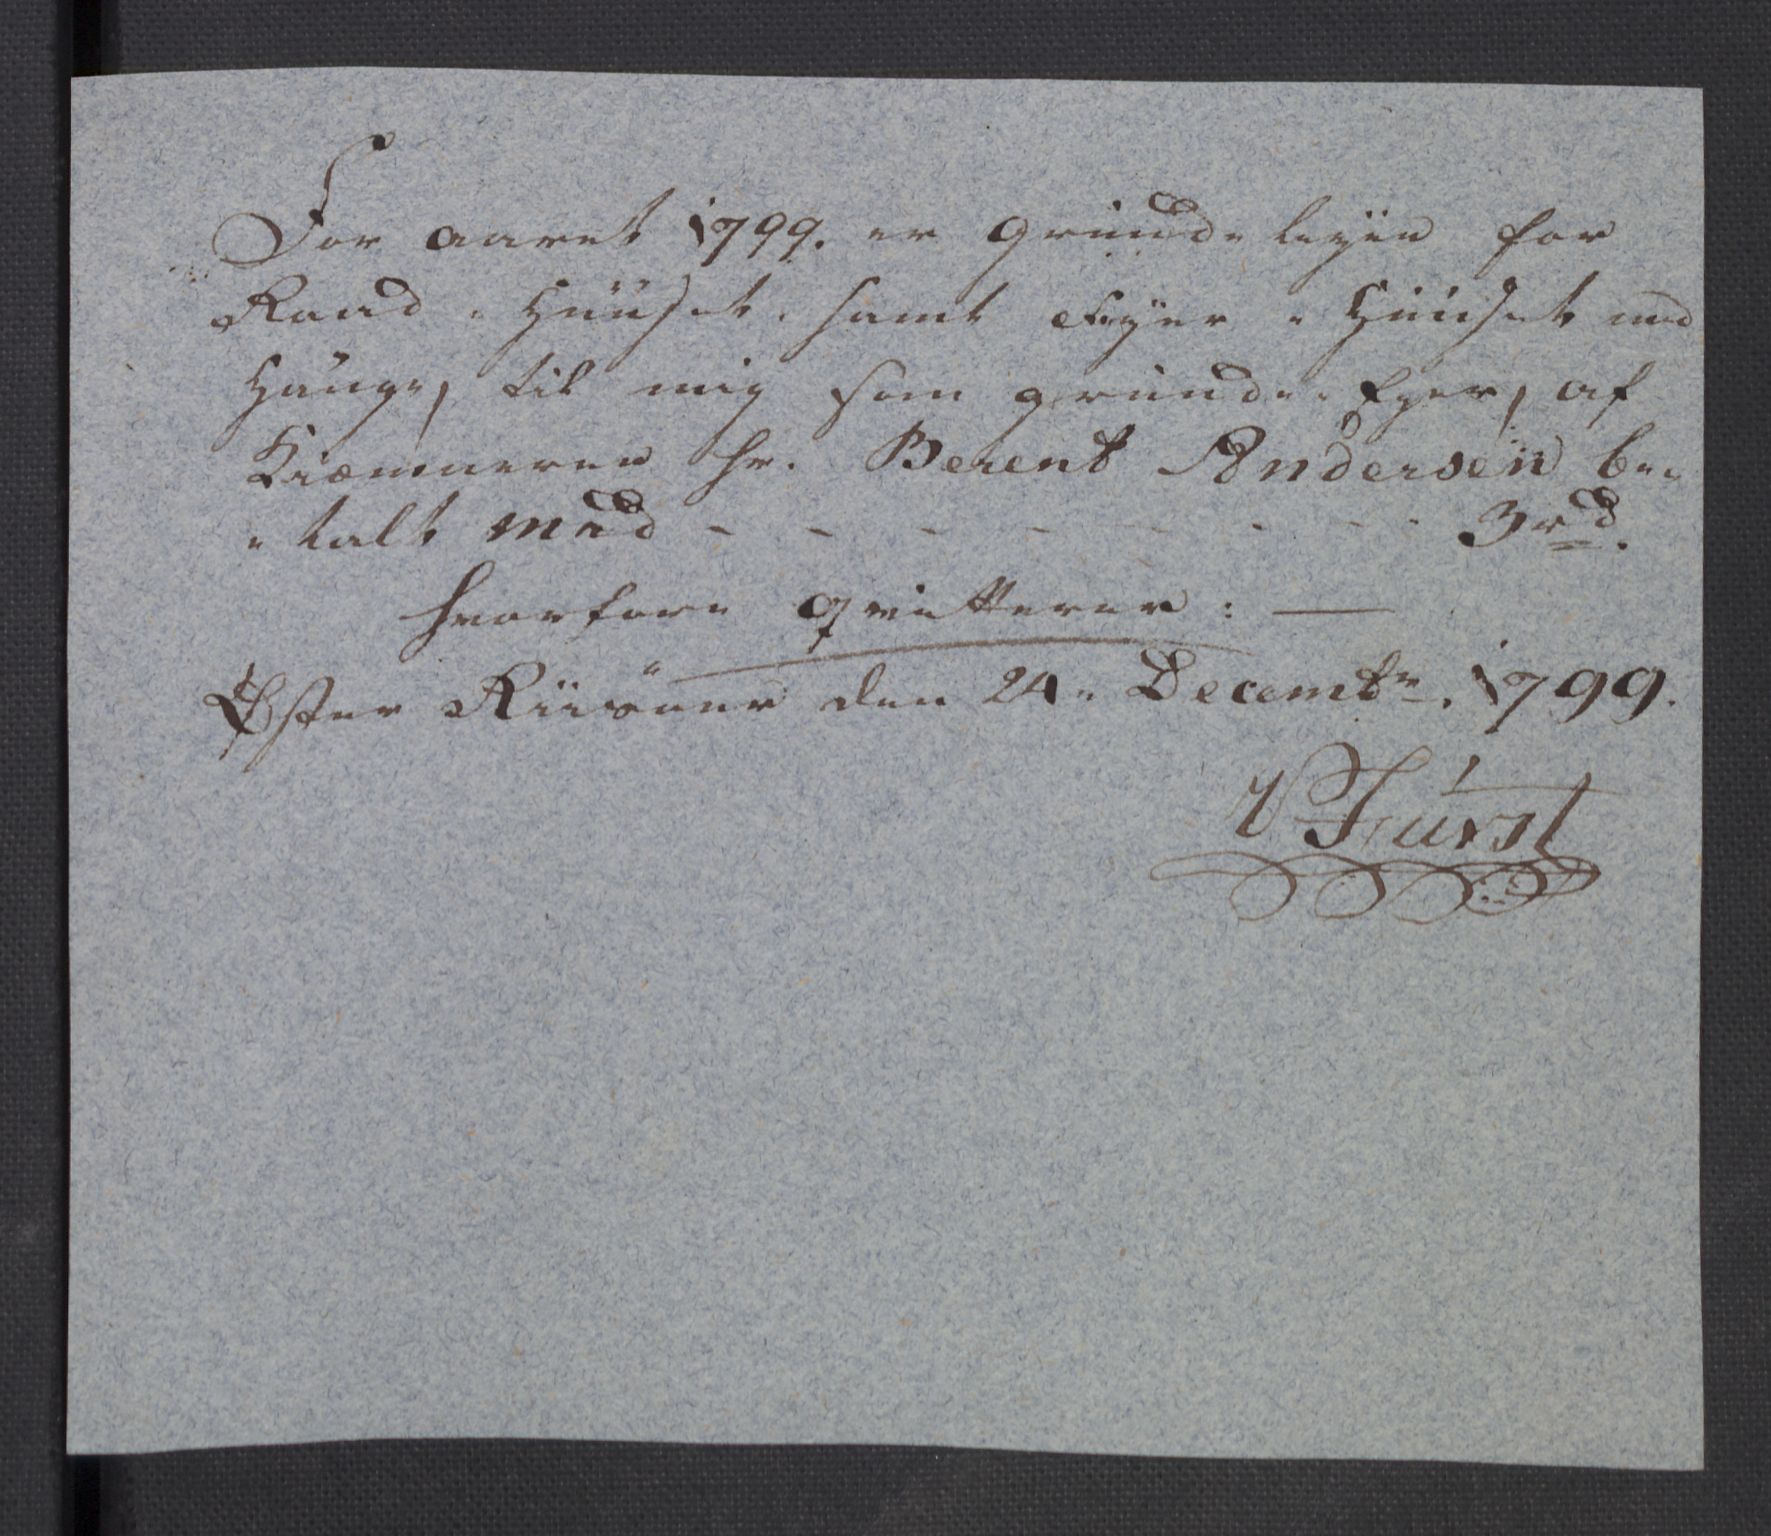 For aaret 1799. er Grunde leyen for
Raad-Huuset samt Sprøyte-Huuset ved
Hauge, til mig som grunde-Eyer, af
Kiæmneren Hr. Berent Andersen be-
-talt med - - - - - - - 3 rd.
hvorfore qvitterer: —
Øster Riisöer den 24. Decembr. 1799.
Fürst